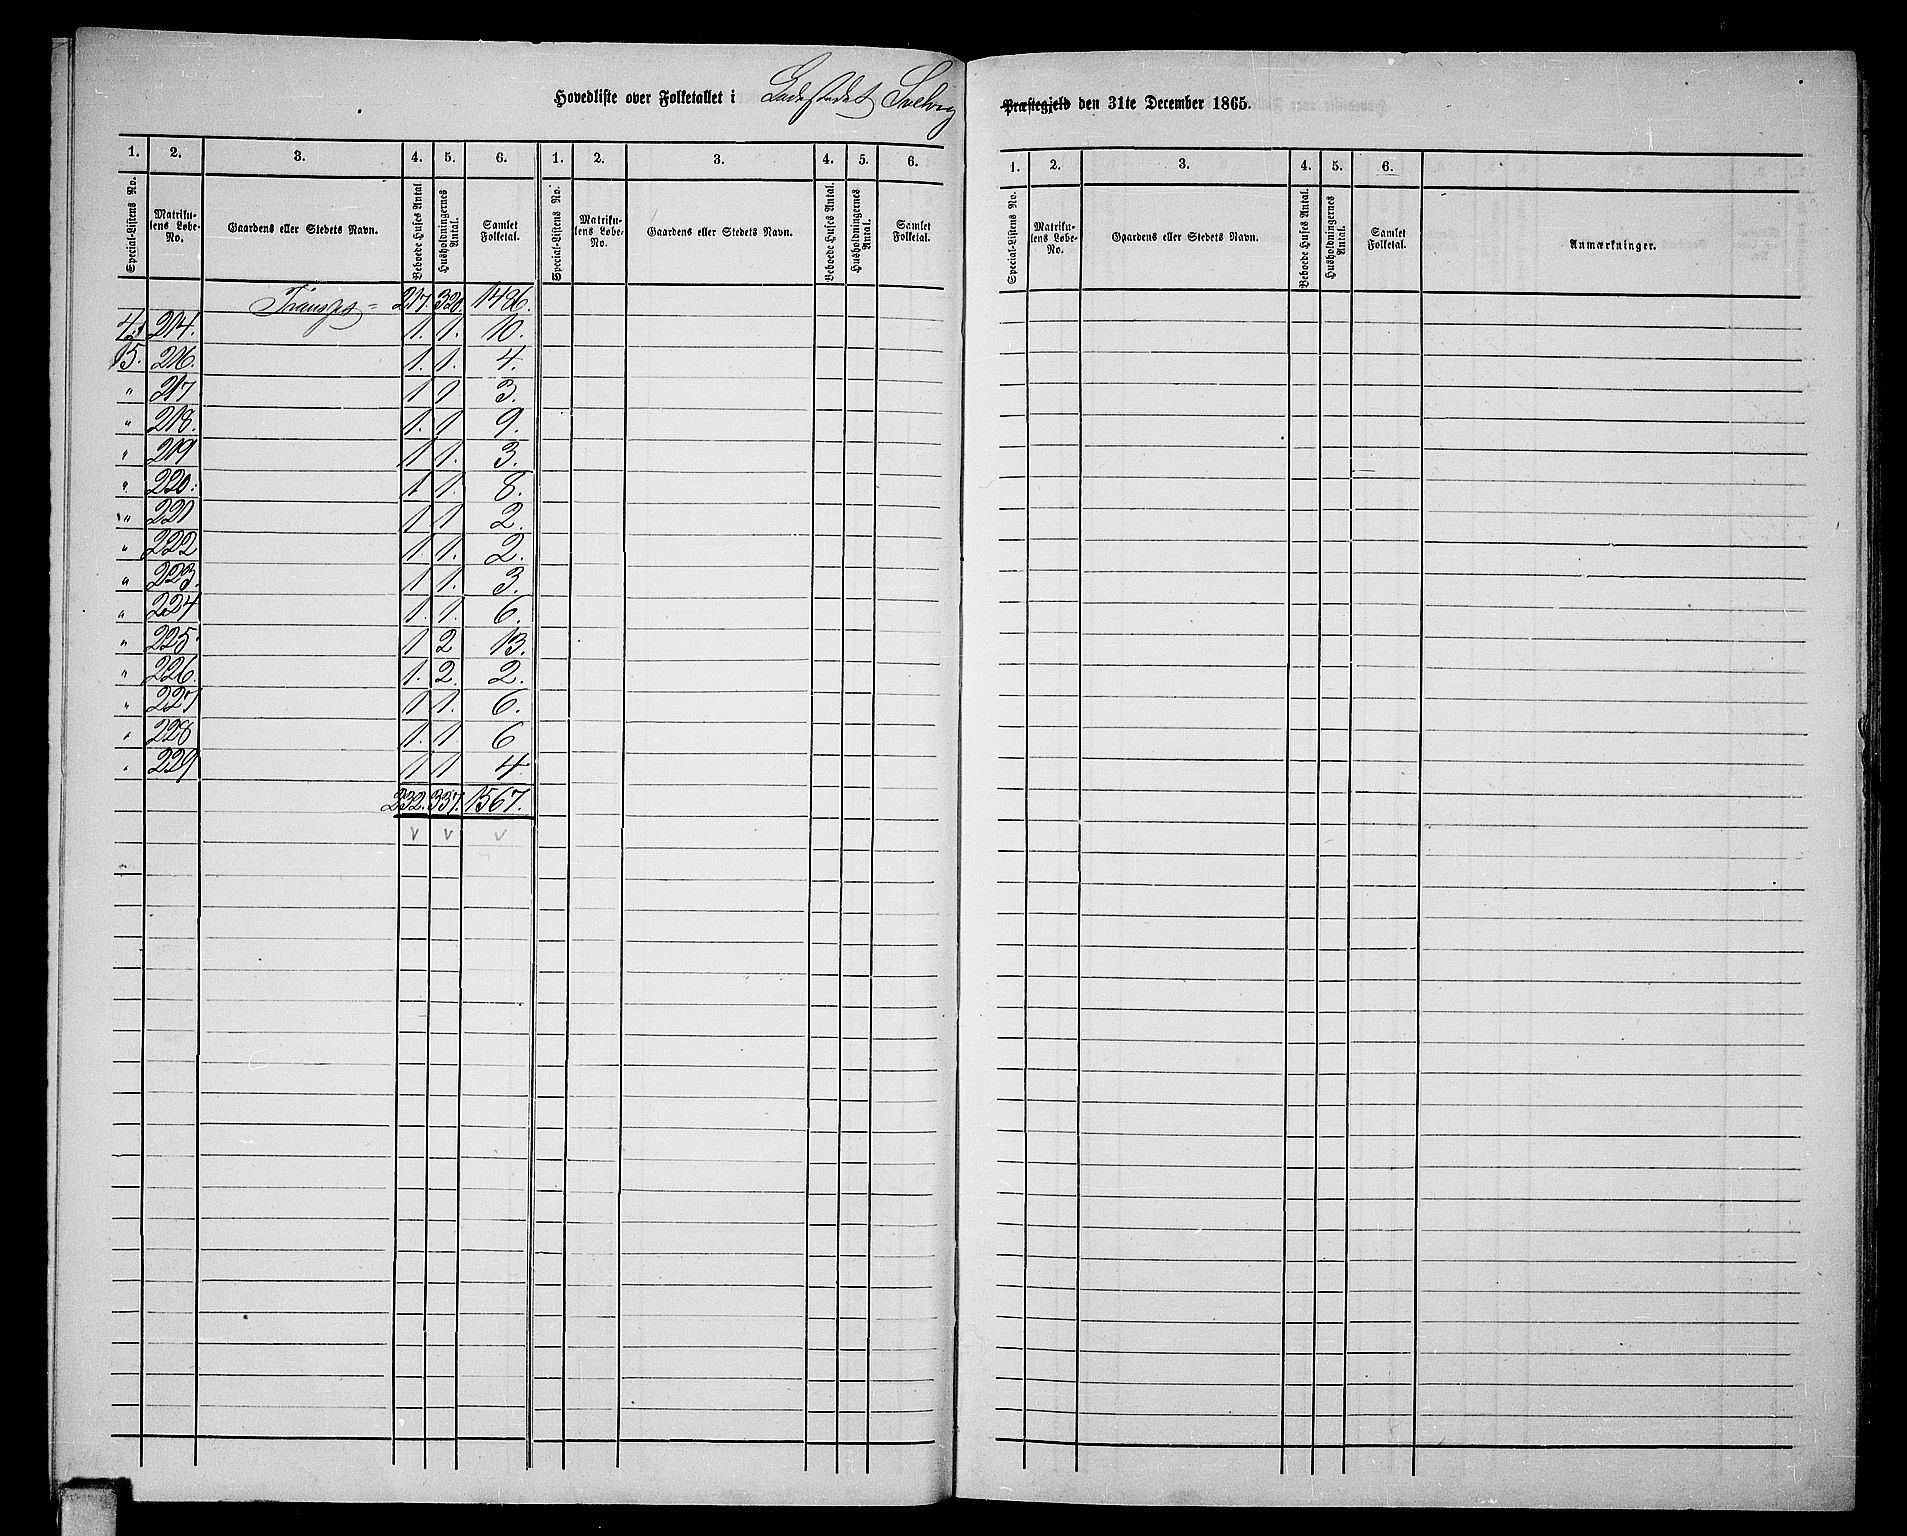 Hovedliste over Folketallet i Ladestedet Svelvig Præstegjeld den 31te December 1865.
1. 2. 3. 4. 5. 6. 1. 2. 3. 4. 5. 6. 1. 2. 3. 4. 5. 6.
Special-Listens No. Matrikulens Løbe-No. Gaardens eller Stedets Navn. Beboede Huses Antal. Husholdningernes Antal. Samlet Folketal. Special-Listens No. Matrikulens Løbe-No. Gaardens eller Stedets Navn. Beboede Huses Antal. Husholdningernes Antal. Samlet Folketal. Special-Listens No. Matrikulens Løbe-No. Gaardens eller Stedets Navn. Beboede Huses Antal. Husholdningernes Antal. Samlet Folketal. Anmærkninger.
217. 320. 1486.
214. 1. 1. 10.
15. 216. 1. 1. 4.
" 217 1 1 3.
" 218. 1. 1 9.
" 219 1 1. 3.
" 220. 1 1. 8.
" 221 1 1 2.
" 222 1. 1. 2.
" 223. 1 1. 3.
" 224 1. 1. 6.
" 225. 1 2 13.
" 226. 1. 2. 2.
" 227 1 1. 6.
" 228 1. 1 6
" 229 1 1 4.
232. 337. 1567.
v v v